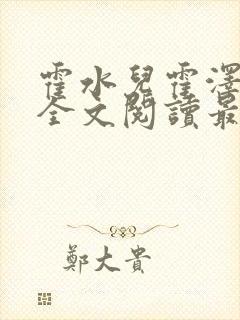 霍水兒霍澤
全文閱讀最
鄭大貴